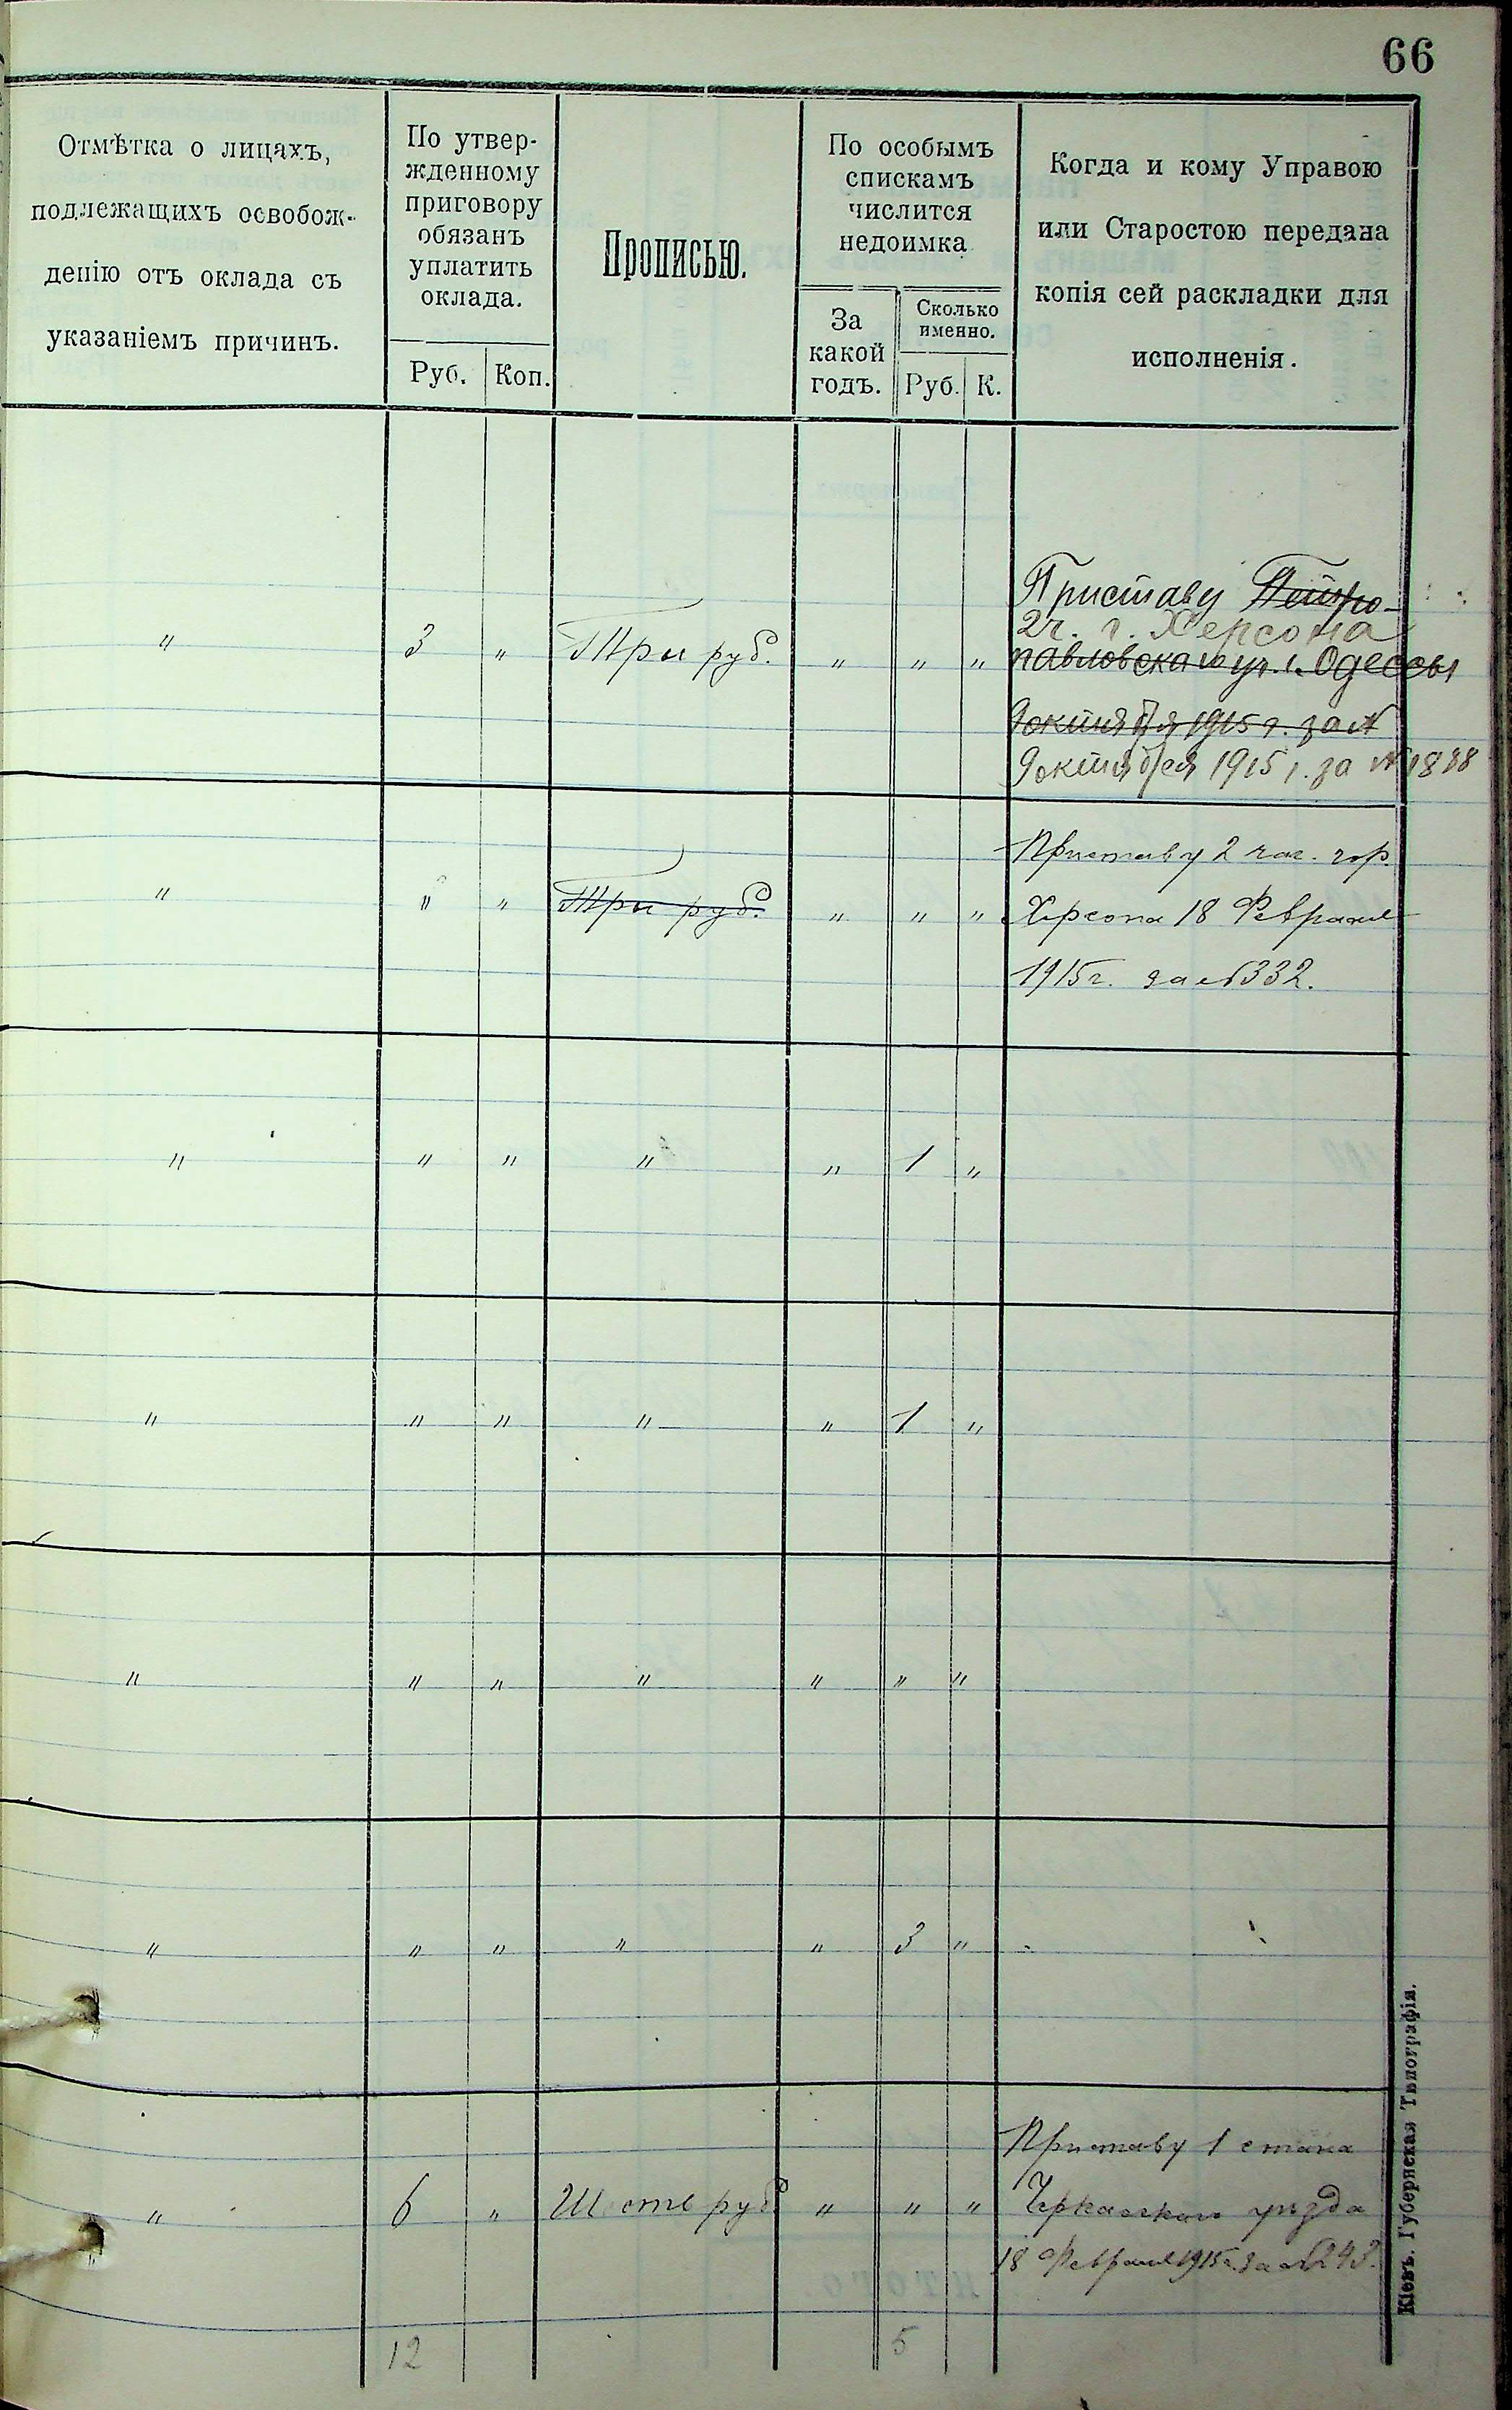 66
Отмѣтка о лицахъ,
подлежащихъ освобож-
денію отъ оклада съ
указаніемъ причинъ.
По утвер-
жденному
приговору
обязанъ
уплатить
оклада.
Руб. Коп.
Прописью.
По особымъ
спискамъ
числится
недоимка
За
какой
годъ.
Сколько
именно.
Руб. К.
Когда и кому Управою
или Старостою передана
копія сей раскладки для
исполненія.
Приставу Петро-
2 ч. г. Херсона
" 3 " Три руб. " " " павловскаго уч. г. Одессы
9 октября 1915 г. за №
9 октября 1915 г. за № 1888
Приставу 2 час. гор.
" " " Три руб. " " " Херсона 18 Февраля
1915 г. за № 332.
" " " " " 1 "
" " " " " 1 "
" " " " " " "
" " " " " 3 "
Приставу 1 стана
" 6 " Шесть руб. " " " Черкасскаго уѣзда
18 Февраля 1915 г. за № 243.
12 5
Кіевъ. Губернская Типографія.